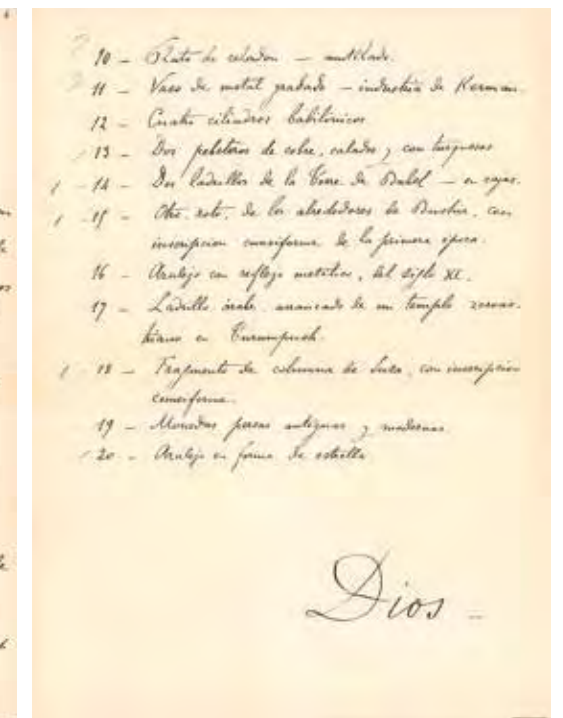 10 – Plato de celadon – mutilado.
11 – Vaso de metal grabado – industria de Kerman.
12 – Cuatro cilindros babilónicos.
13 – Dos pebeteros de cobre, calados y con turquesas
14 – Dos ladrillos de la Torre de Babel – en cajas.
15 – Otro, roto, de los alrededores de Bushir, con
inscripcion cuneiforme de la primera época.
16 – Azulejo con reflejo metálico, del siglo XI.
17 – Ladrillo árabe, arrancado de un templo zoroas-
triano en
18 – Fragmento de columna de Susa, con inscripcion
cuneiforme.
19 – Monedas persas antiguas y modernas.
20 – Azulejo en forma de estrella
Dios –